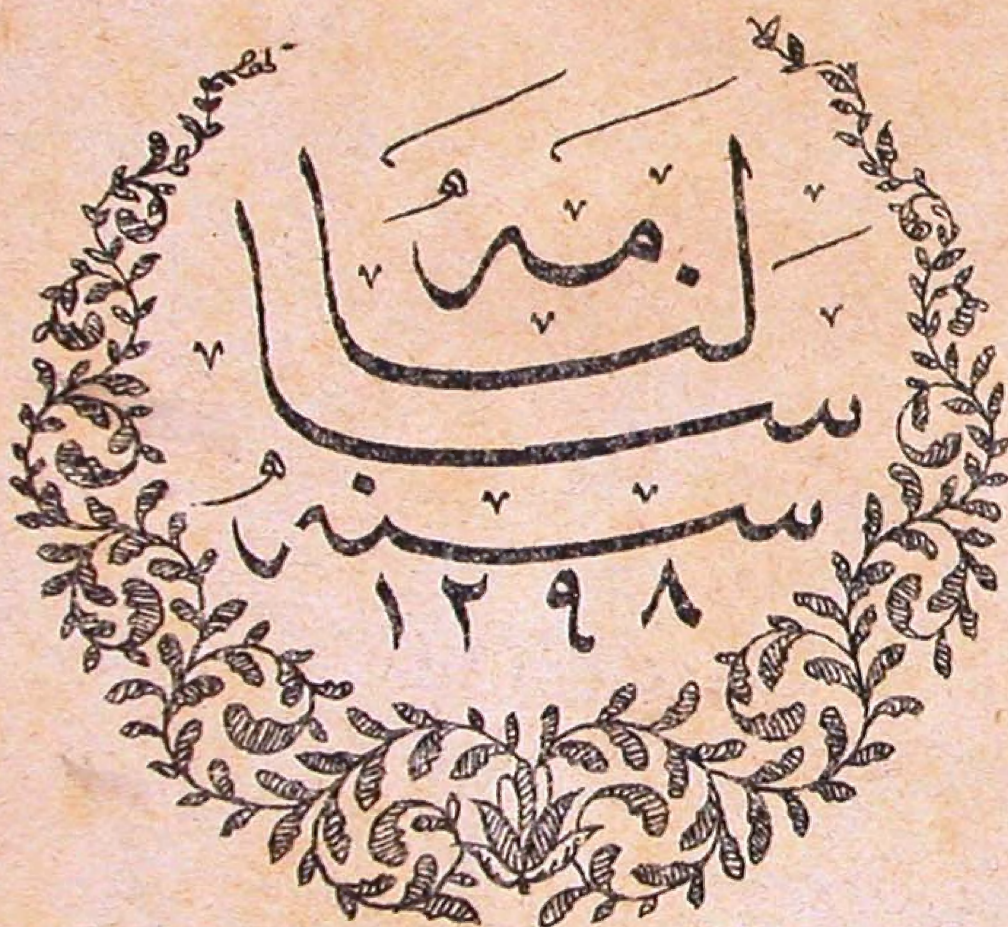 سالنامه
سنه
١٢٩٨